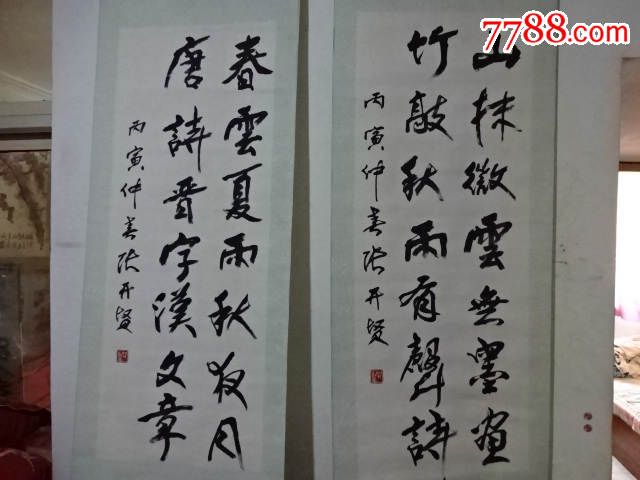 7788.com
山抹微雲無墨畫
竹敲秋雨有聲詩
丙寅仲春張开賢
春雲夏雨秋夜月
唐詩晉字漢文章
丙寅仲春張开賢